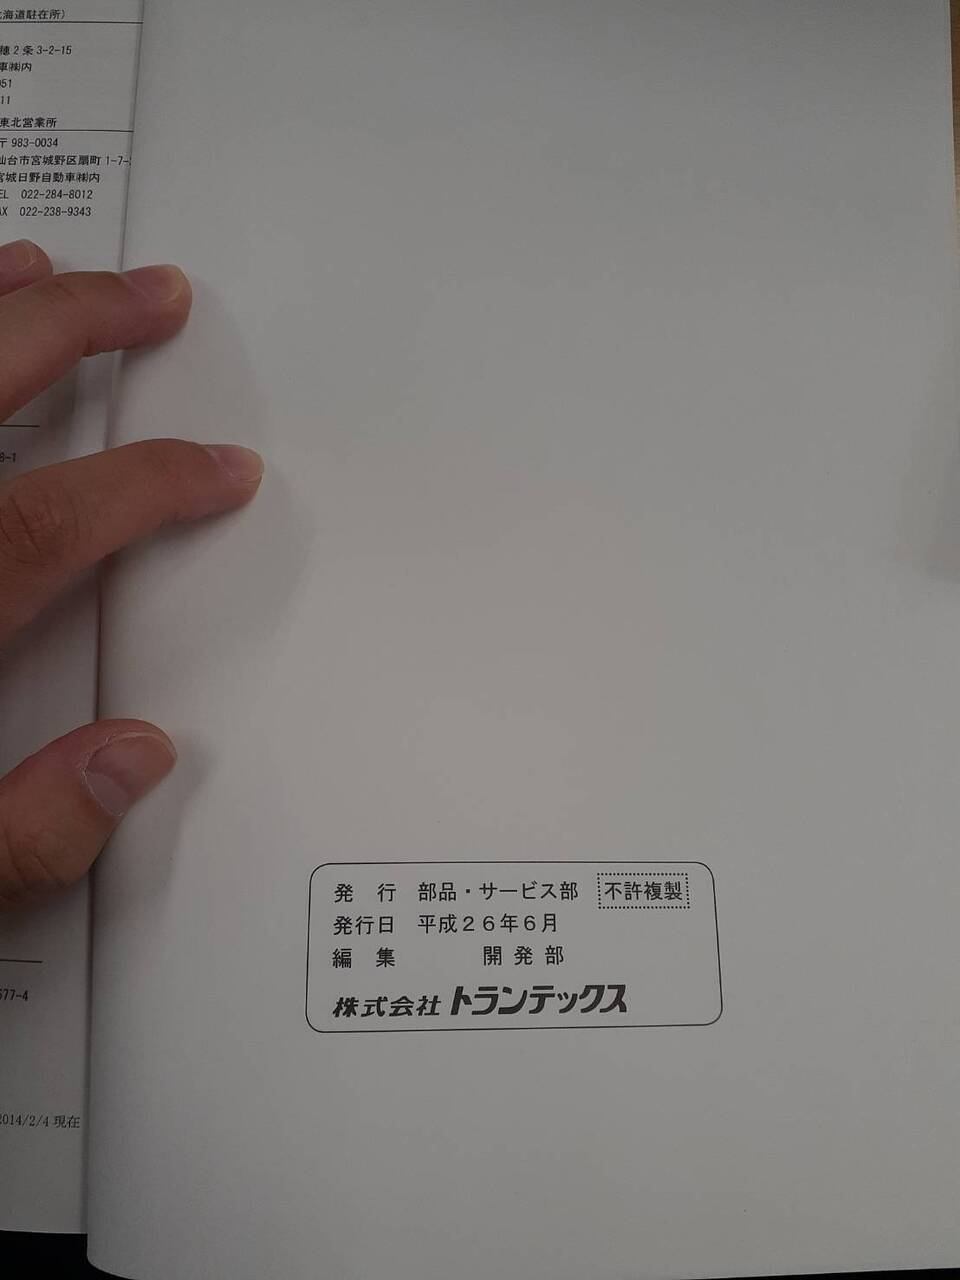 海道駐在所）
穂2条3-2-15
車㈱内
051
11
東北営業所
〒983-0034
仙台市宮城野区扇町1-7-
宮城日野自動車㈱内
EL 022-284-8012
AX 022-238-9343
8-1
577-4
2014/2/4現在
発　行　部品・サービス部　不許複製
発行日　平成２６年６月
編　集　開発部
株式会社トランテックス